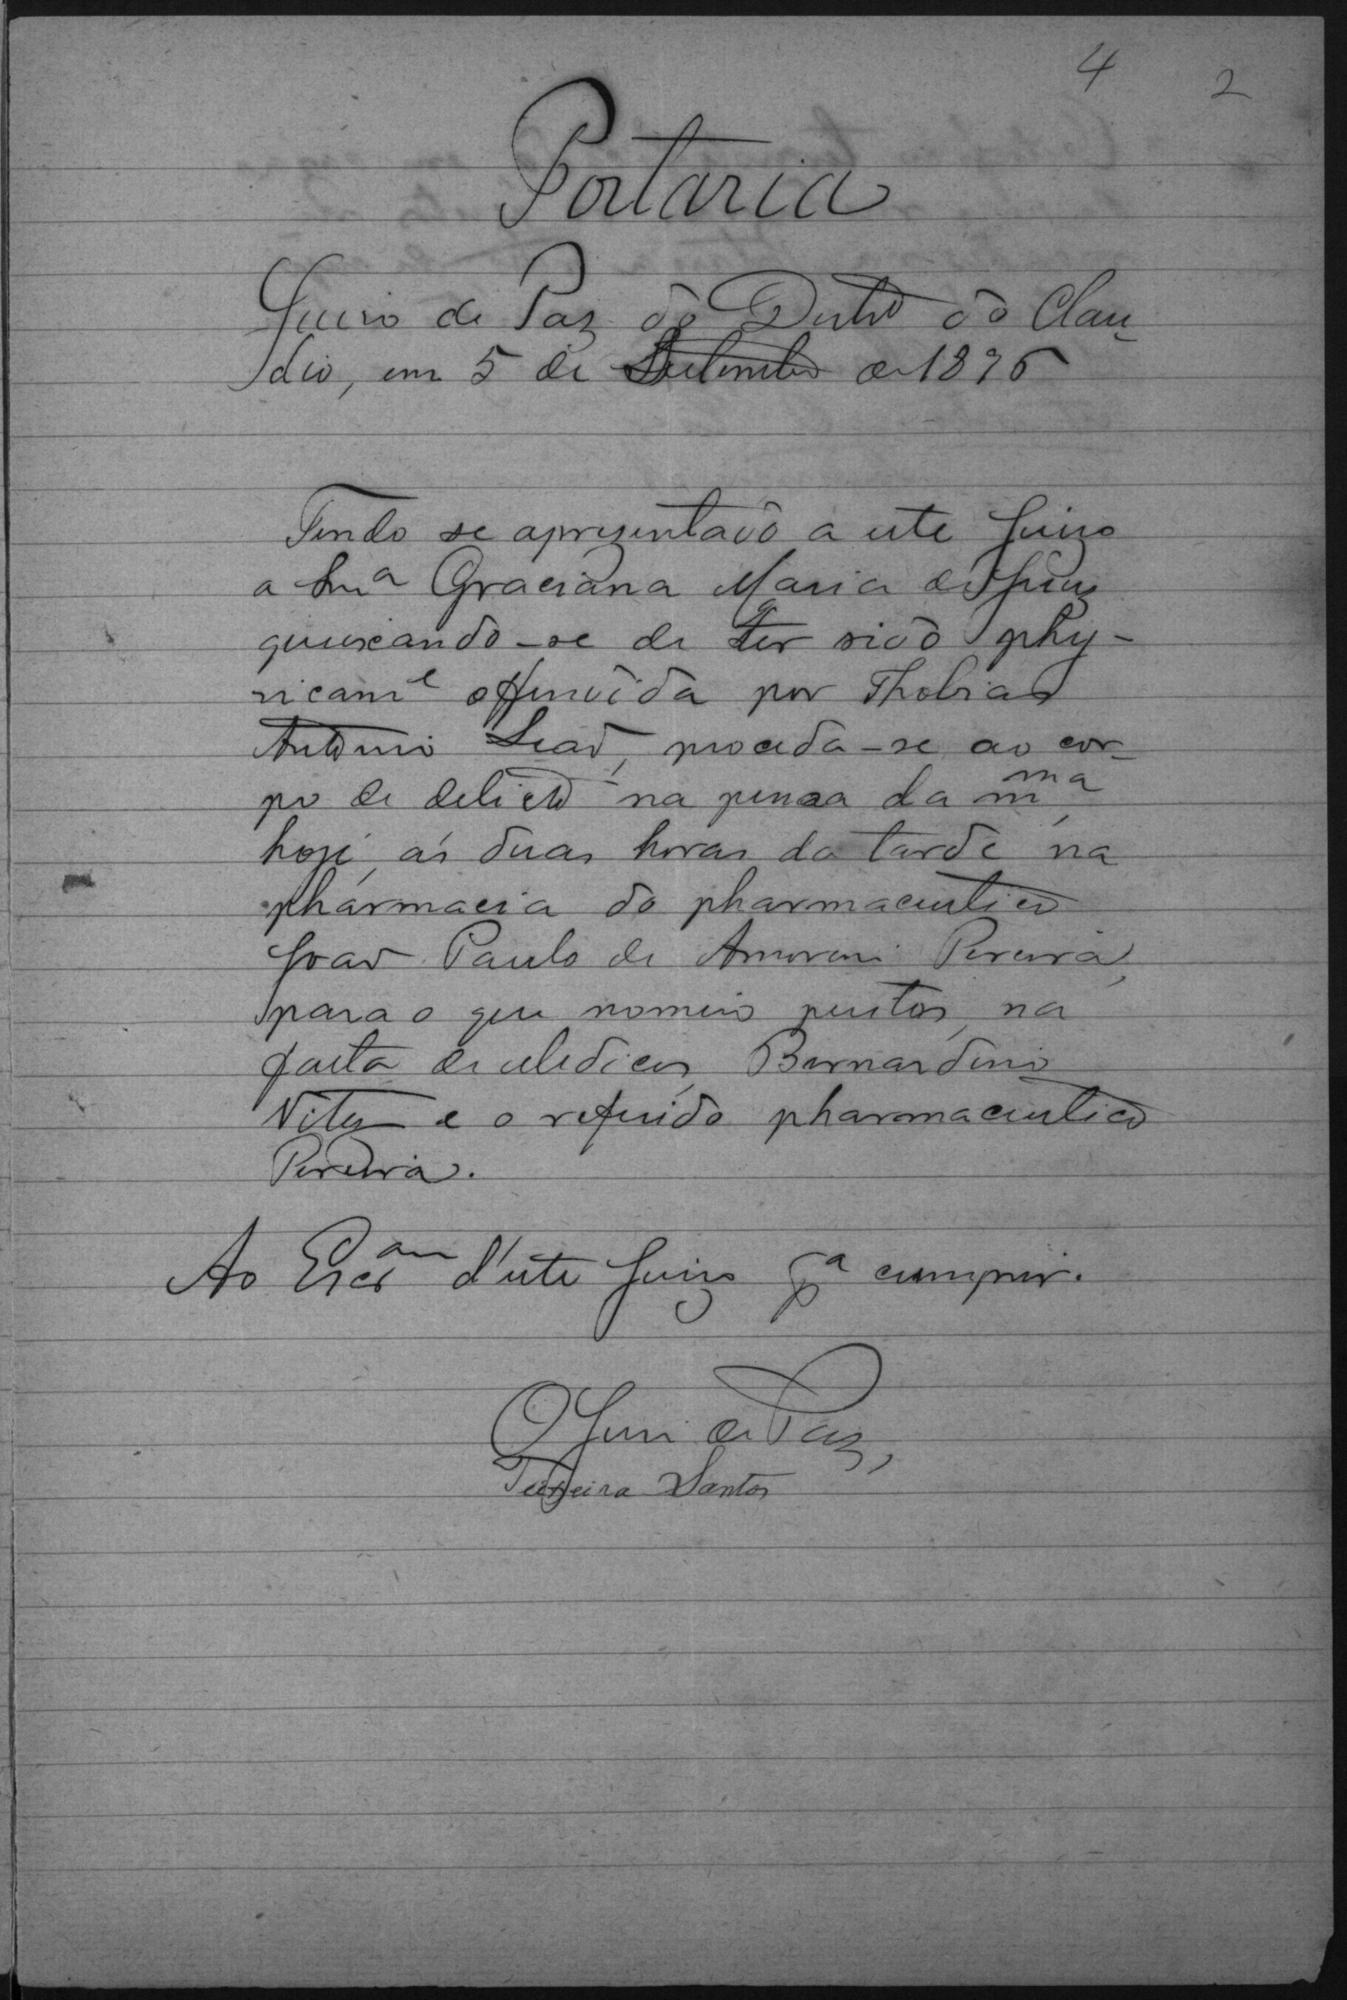 4 2
Portaria
Juiso de Paz do Distrº do Clau
dio, em 5 de Setembro de 1896
Tendo se apresentado a este Juizo
a Snrª Graciana Maria de Jesus
queixando-se de ter sido phy-
sicamᵉ offendida por Thobias
Antonio Leão, proceda-se ao cor-
po de delicto na pessoa da mᵐᵃ
hoje, ás duas horas da tarde na
pharmacia do pharmaceutico
João Paulo de Amorim Pereira,
para o que nomeio peritos, na
falta de medicos, Bernardino
e o referido pharmaceutico
Pereira.
Ao Escᵃᵐ d'este Juizo pª cumprir.
O Juiz de Paz,
Teixeira Santos